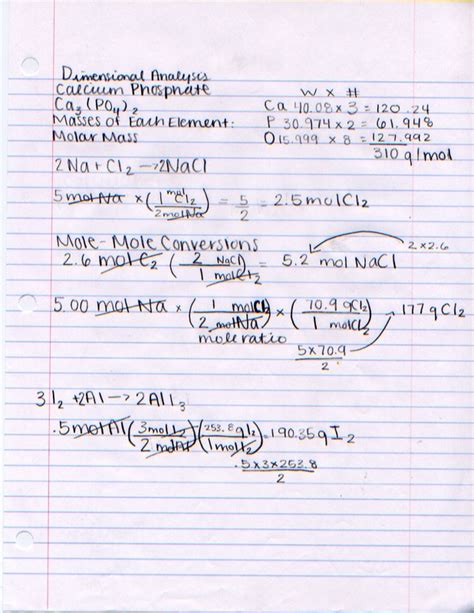 Dimensional Analysis
Calcium Phosphate W x #
Ca₃(PO₄)₂ Ca 40.08 x 3 = 120.24
Masses of Each Element: P 30.974 x 2 = 61.948
Molar Mass O 15.999 x 8 = 127.992
310 g/mol
2Na + Cl₂ → 2NaCl
5 mol Na x (1 mol Cl₂ / 2 mol Na) = 5/2 = 2.5 mol Cl₂
Mole-Mole Conversions 2 x 2.6
2.6 mol Cl₂ (2 NaCl / 1 mol Cl₂) = 5.2 mol NaCl
5.00 mol Na x (1 mol Cl₂ / 2 mol Na) x (70.9 g Cl₂ / 1 mol Cl₂) 177 g Cl₂
mole ratio
5 x 70.9 / 2
3I₂ + 2Al → 2AlI₃
.5 mol Al (3 mol I₂ / 2 mol Al) (253.8 g I₂ / 1 mol I₂) = 190.35 g I₂
.5 x 3 x 253.8 / 2